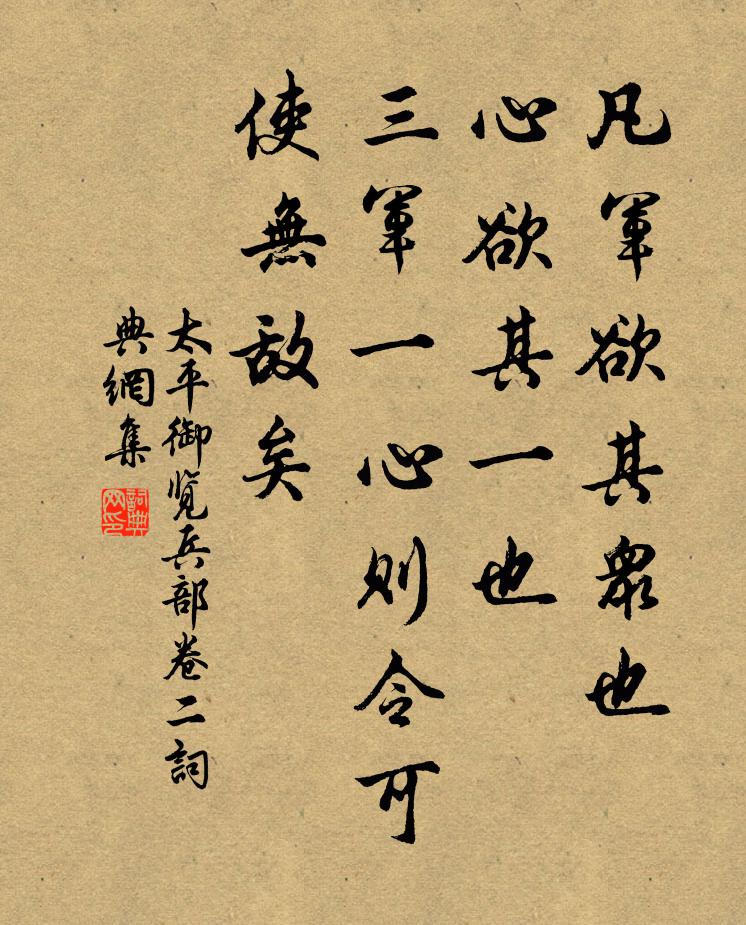 凡軍欲其衆也
心欲其一也
三軍一心則令可
使無敵矣
太平御览兵部卷二詞
典網集
詞典網印